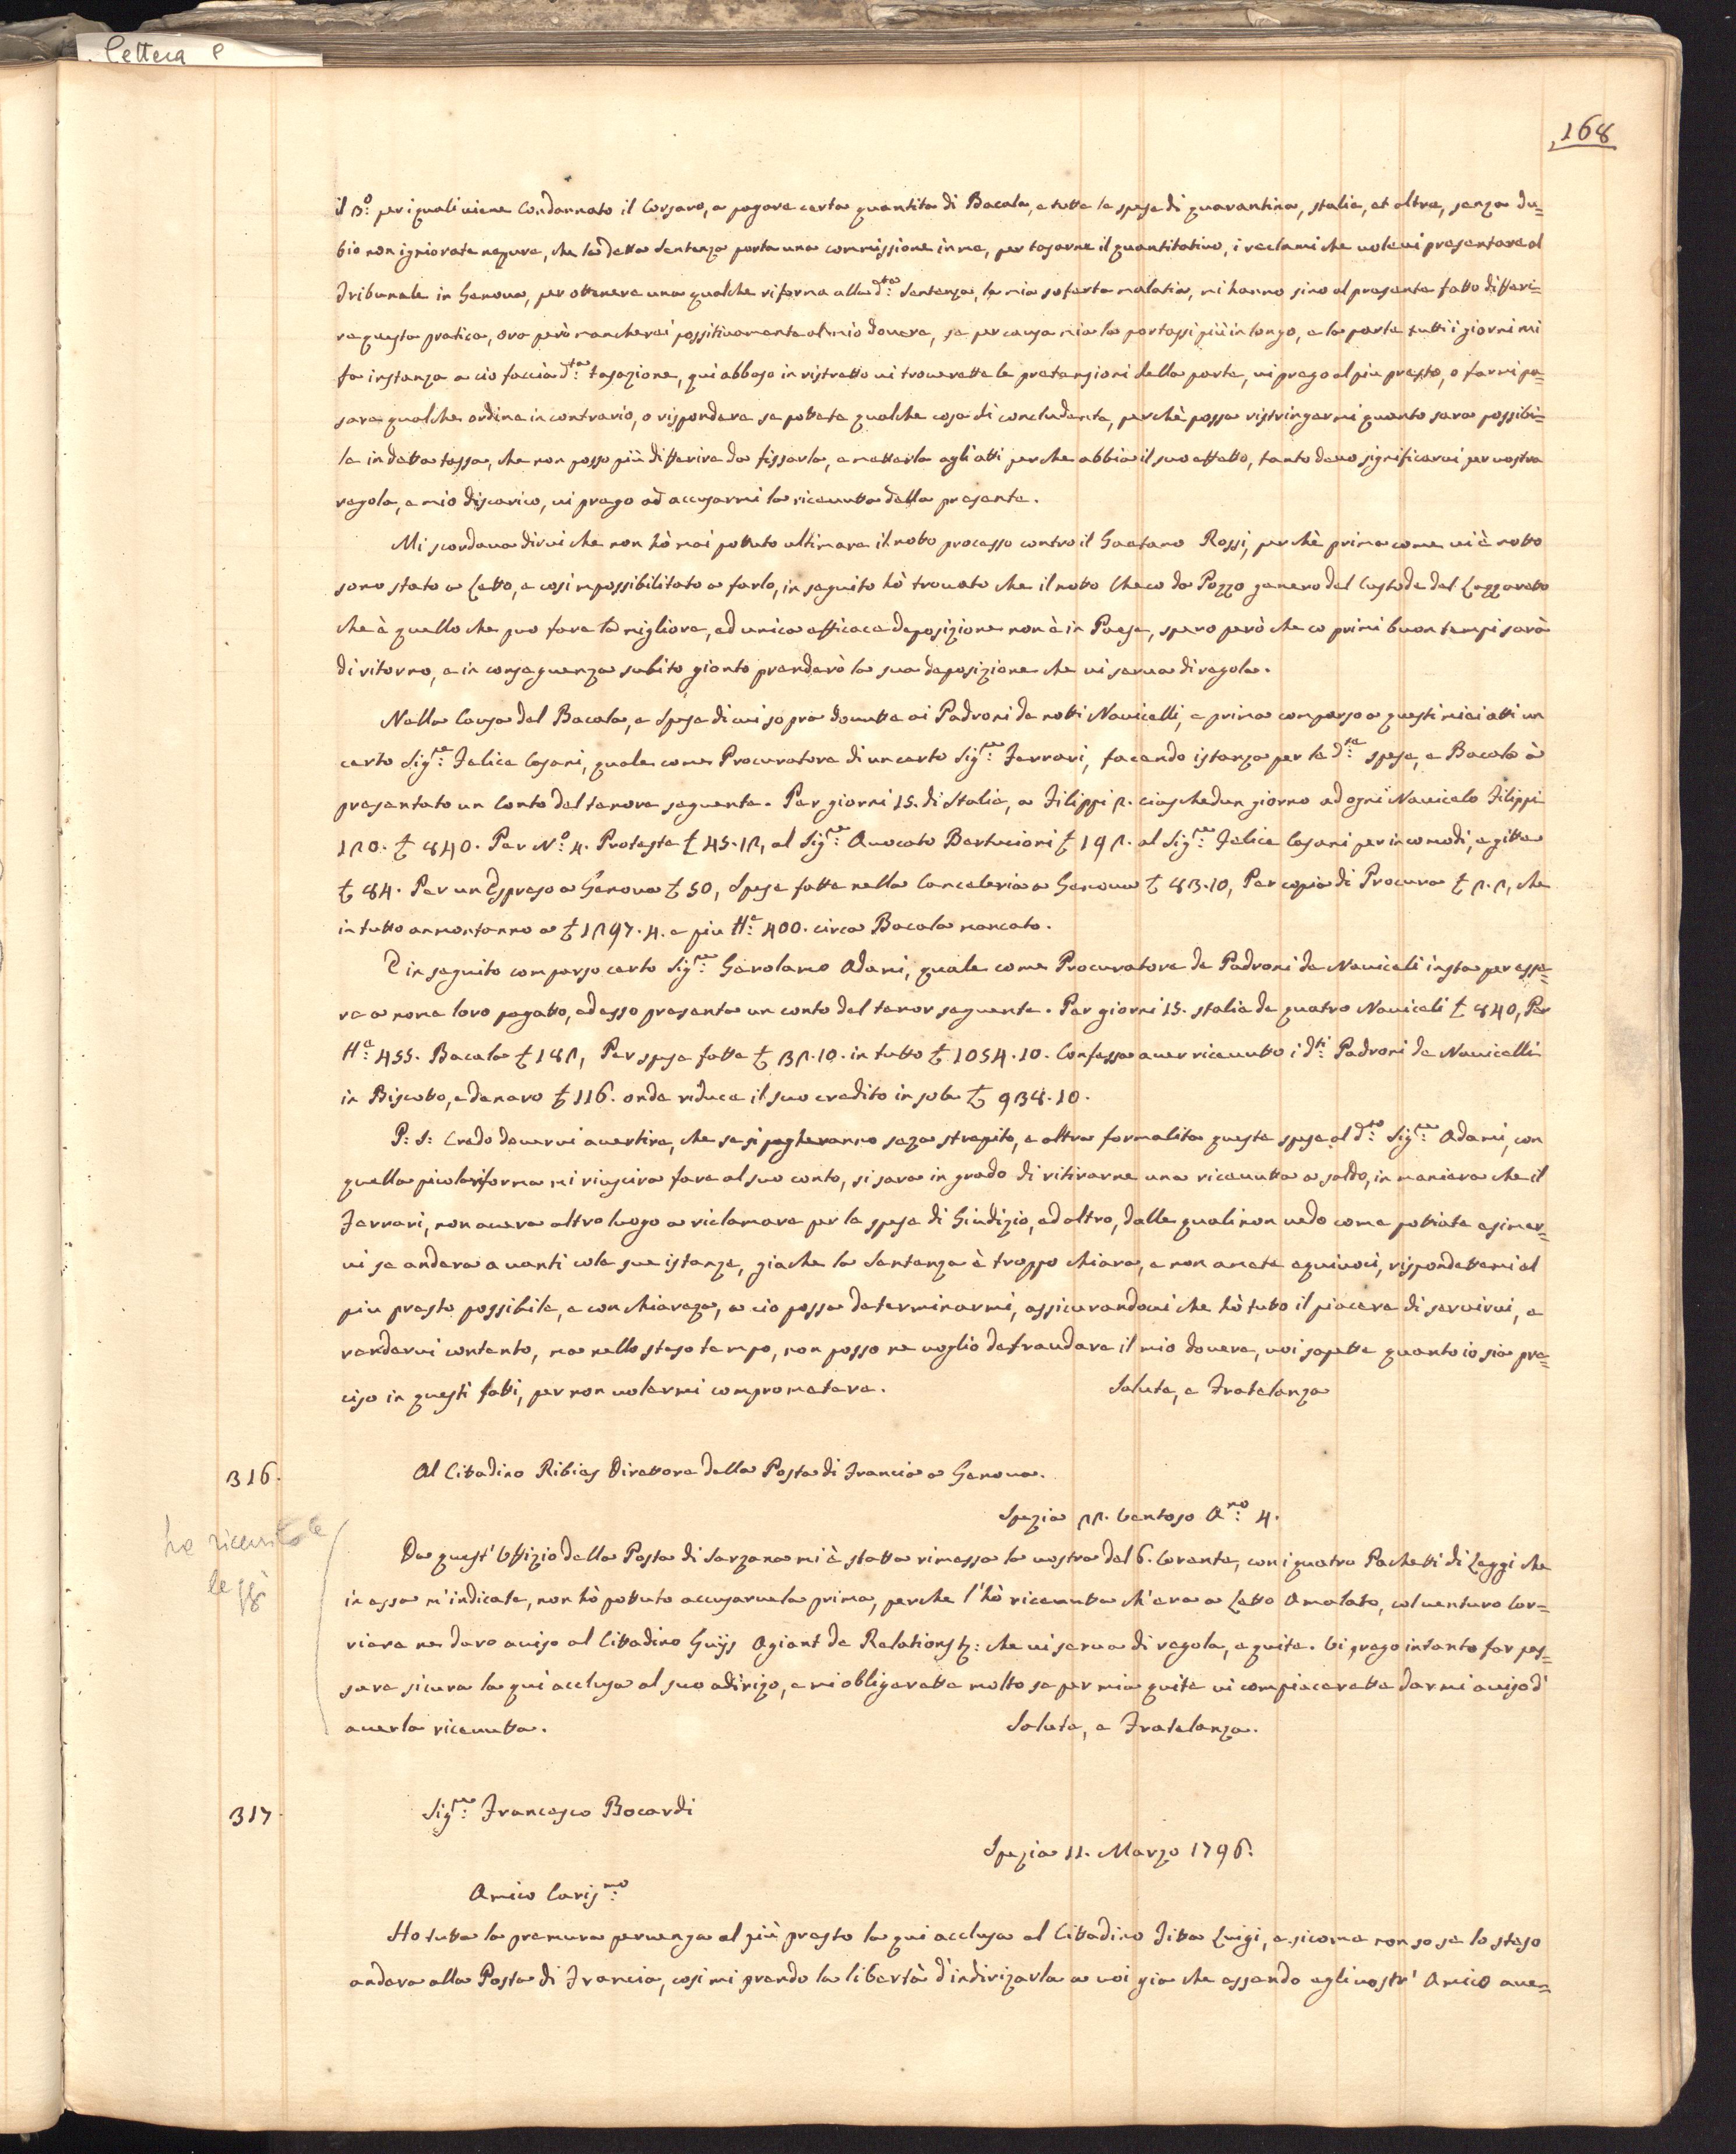 Lettera
168
il 3º: per i quali viene Condannato il Corsaro, a pagare certa quantita di Bacala, e tutte le spese di quarantina, stalie, et altre, senza du=
bio non igniorate nepure, che la detta Sentenza porta una commissione in me, per tasarne il quantitativo, i reclami che volevi presentare al
Tribunale in Genova, per ottenere una qualche riforma alla d:ta Sentenza, la mia soferta malatia, mi hanno sino al presente fatto differi=
re questa pratica, ora però mancherei possitivamente al mio dovere, se per causa mia la portassi più in longo, e la parte tutti i giorni mi
fa instanza a cio faccia d:ta tasazione, qui abbaso in ristretto vi troverette le pretensioni della parte, vi prego al piu presto, o farmi pa=
sare qualche ordine in contrario, o rispondere se pottete qualche cosa di concludente, perchè possa ristringermi quanto sara possibi=
le in detta tassa, che non posso più differire da fissarla, e metterla agli atti perche abbia il suo effetto, tanto devo significarvi per vostra
regola, e mio discarico, vi prego ad accusarmi la ricevutta della presente.
Mi scordava dirvi che non hò mai pottuto ultimare il notto processo contro il Gaetano Rossi, perchè prima come vi è notto
sono stato a Letto, e cosi impossibilitato a farlo, in seguito hò trovato che il notto Checo da Pozzo genero del Custode del Lazzaretto
che è quello che puo fare la migliore, ed unica efficace deposizione non è in Paese, spero però che a primi buon tempi sarà
di ritorno, e in conseguenza subito gionto prenderò la sua deposizione che vi serva di regola.
Nella Causa del Bacala, e Spese di cui sopra dovutte ai Padroni de notti Navicelli, e prima comparso a questi miei atti un
certo Sig:re Felice Cosani, quale come Procuratore di un certo Sig:re Ferrari, facendo istanza per le d:te spese, e Bacala à
presentato un Conto del tenore seguente. Per giorni 15. di Stalie, a Filippi 2. ciaschedun giorno ad ogni Navicelo Filippi
120. £ 840. Per Nº 4. Proteste £ 45.12, al Sig:re Avocato Bertucioni £ 192. al Sig:re Felice Cosani per incomodi, e gitte
£ 84. Per un Espreso a Genova £ 50, Spese fatte nella Canceleria a Genova £ 83.10, Per copia di Procura £ 2.2, che
in tutto ammontanno a £ 1297.4. e piu tt:e 400. circa Bacala mancato.
È in seguito comparso certo Sig:re Gerolamo Adami, quale come Procuratore de Padroni de Naviceli insta per esse=
re a nome loro pagatto, ad esso presenta un conto del tenor seguente. Per giorni 15. stalie de quatro Naviceli £ 840, Per
tt:e 455. Bacala £ 182, Per spese fatte £ 32.10. in tutto £ 1054.10. Confessa aver ricevutto i d:ti Padroni de Navicelli
in Biscotto, e denaro £ 116. onde riduce il suo credito in sole £ 938.10.
P: S: Credo dovervi avertire, che se si pagheranno seza strepito, e altra formalita queste spese al d:to Sig:re Adami, con
quella picola riforma mi riuscira fare al suo conto, si sara in grado di ritirarne una ricevutta a saldo, in maniera che il
Ferrari, non avera altro luogo a riclamare per le spese di Giudizio, ed altro, dalle quali non vedo come pottiate esimer=
vi se andera avanti cole sue istanze, giache la Sentenza è troppo chiara, e non amete equivoci, rispondettemi al
piu presto possibile, e con chiareza, a cio possa determinarmi, assicurandovi che hò tutto il piacere di servirvi, e
rendervi contento, ma nello steso tempo, non posso ne voglio defraudare il mio dovere, voi sapette quanto io sia pre=
ciso in questi fatti, per non volermi comprometere. Salute, e Fratelanza
316. Al Cittadino Ribies Direttore della Posta di Francia a Genova.
Spezia 22. Ventoso A:no 4.
ha ricevuto le
leggi
Da quest' Uffizio della Posta di Sarzana mi è statta rimessa la vostra del 6. Corente, con i quatro Pachetti di Leggi che
in essa m'indicate, non hò pottuto accusarvela prima, perche l'hò ricevutta ch'era a Letto Amalato, col venturo Cor=
riere ne daro aviso al Cittadino Guijs Agiant de Relations &: che vi serva di regola, e guite. Vi prego intanto far pas=
sare sicura la qui acclusa al suo adirizo, e mi obligarette molto se per mia guite vi compiacerette darmi aviso d'
averla ricevutta. Salute, e Fratelanza.
317. Sig:re Francesco Bocardi
Spezia 11. Marzo 1796.
Amico Caris:mo
Ho tutta la premura pervenga al più presto la qui acclusa al Cittadino Titta Luigi, e sicome non so se lo steso
andera alla Posta di Francia, cosi mi prendo la libertà d'indirizarla a voi gia che essendo egli vostr' Amico ave=